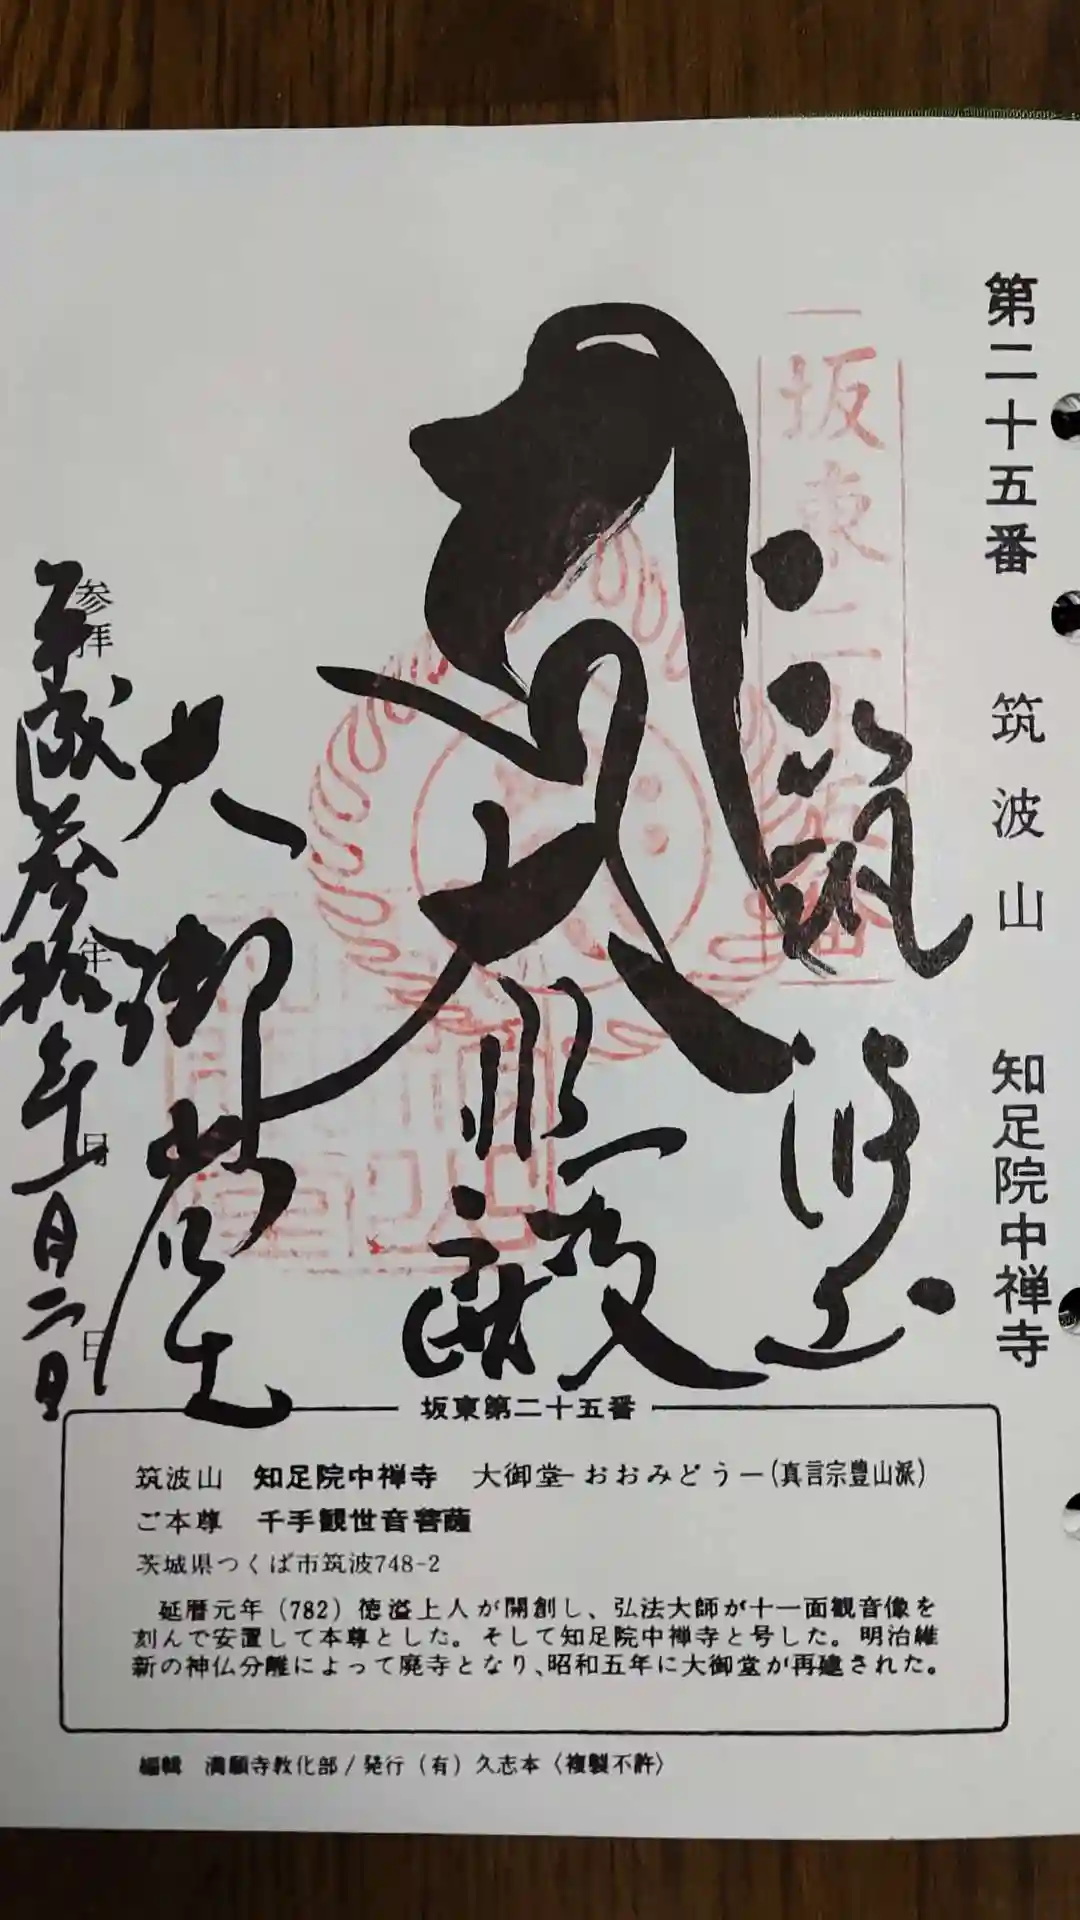 第二十五番 筑波山 知足院中禅寺
坂東二十五番
筑波山
大悲殿
大御堂
参拝 年 月 日
平成参拾年一月二日
坂東第二十五番
筑波山 知足院中禅寺 大御堂ーおおみどうー(真言宗豊山派)
ご本尊 千手観世音菩薩
茨城県つくば市筑波748-2
延暦元年(782)徳溢上人が開創し、弘法大師が十一面観音像を
刻んで安置して本尊とした。そして知足院中禅寺と号した。明治維
新の神仏分離によって廃寺となり、昭和五年に大御堂が再建された。
編輯 満願寺教化部/発行(有)久志本〈複製不許〉